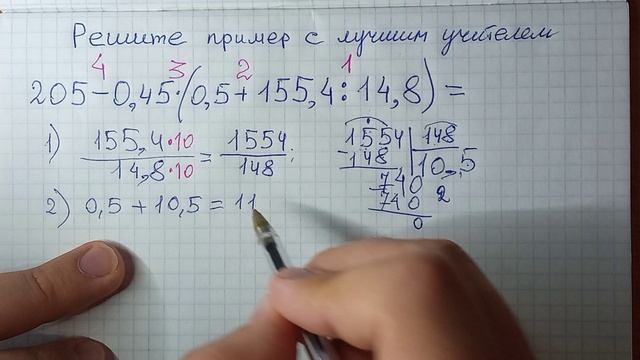 Решите пример с лучшим учителем
4 3 2 1
205-0,45·(0,5+155,4:14,8)=
1) 155,4·10 / 14,8·10 = 1554 / 148;
1554 | 148
-148 | 10,5
740
740 2
0
2) 0,5+10,5=11